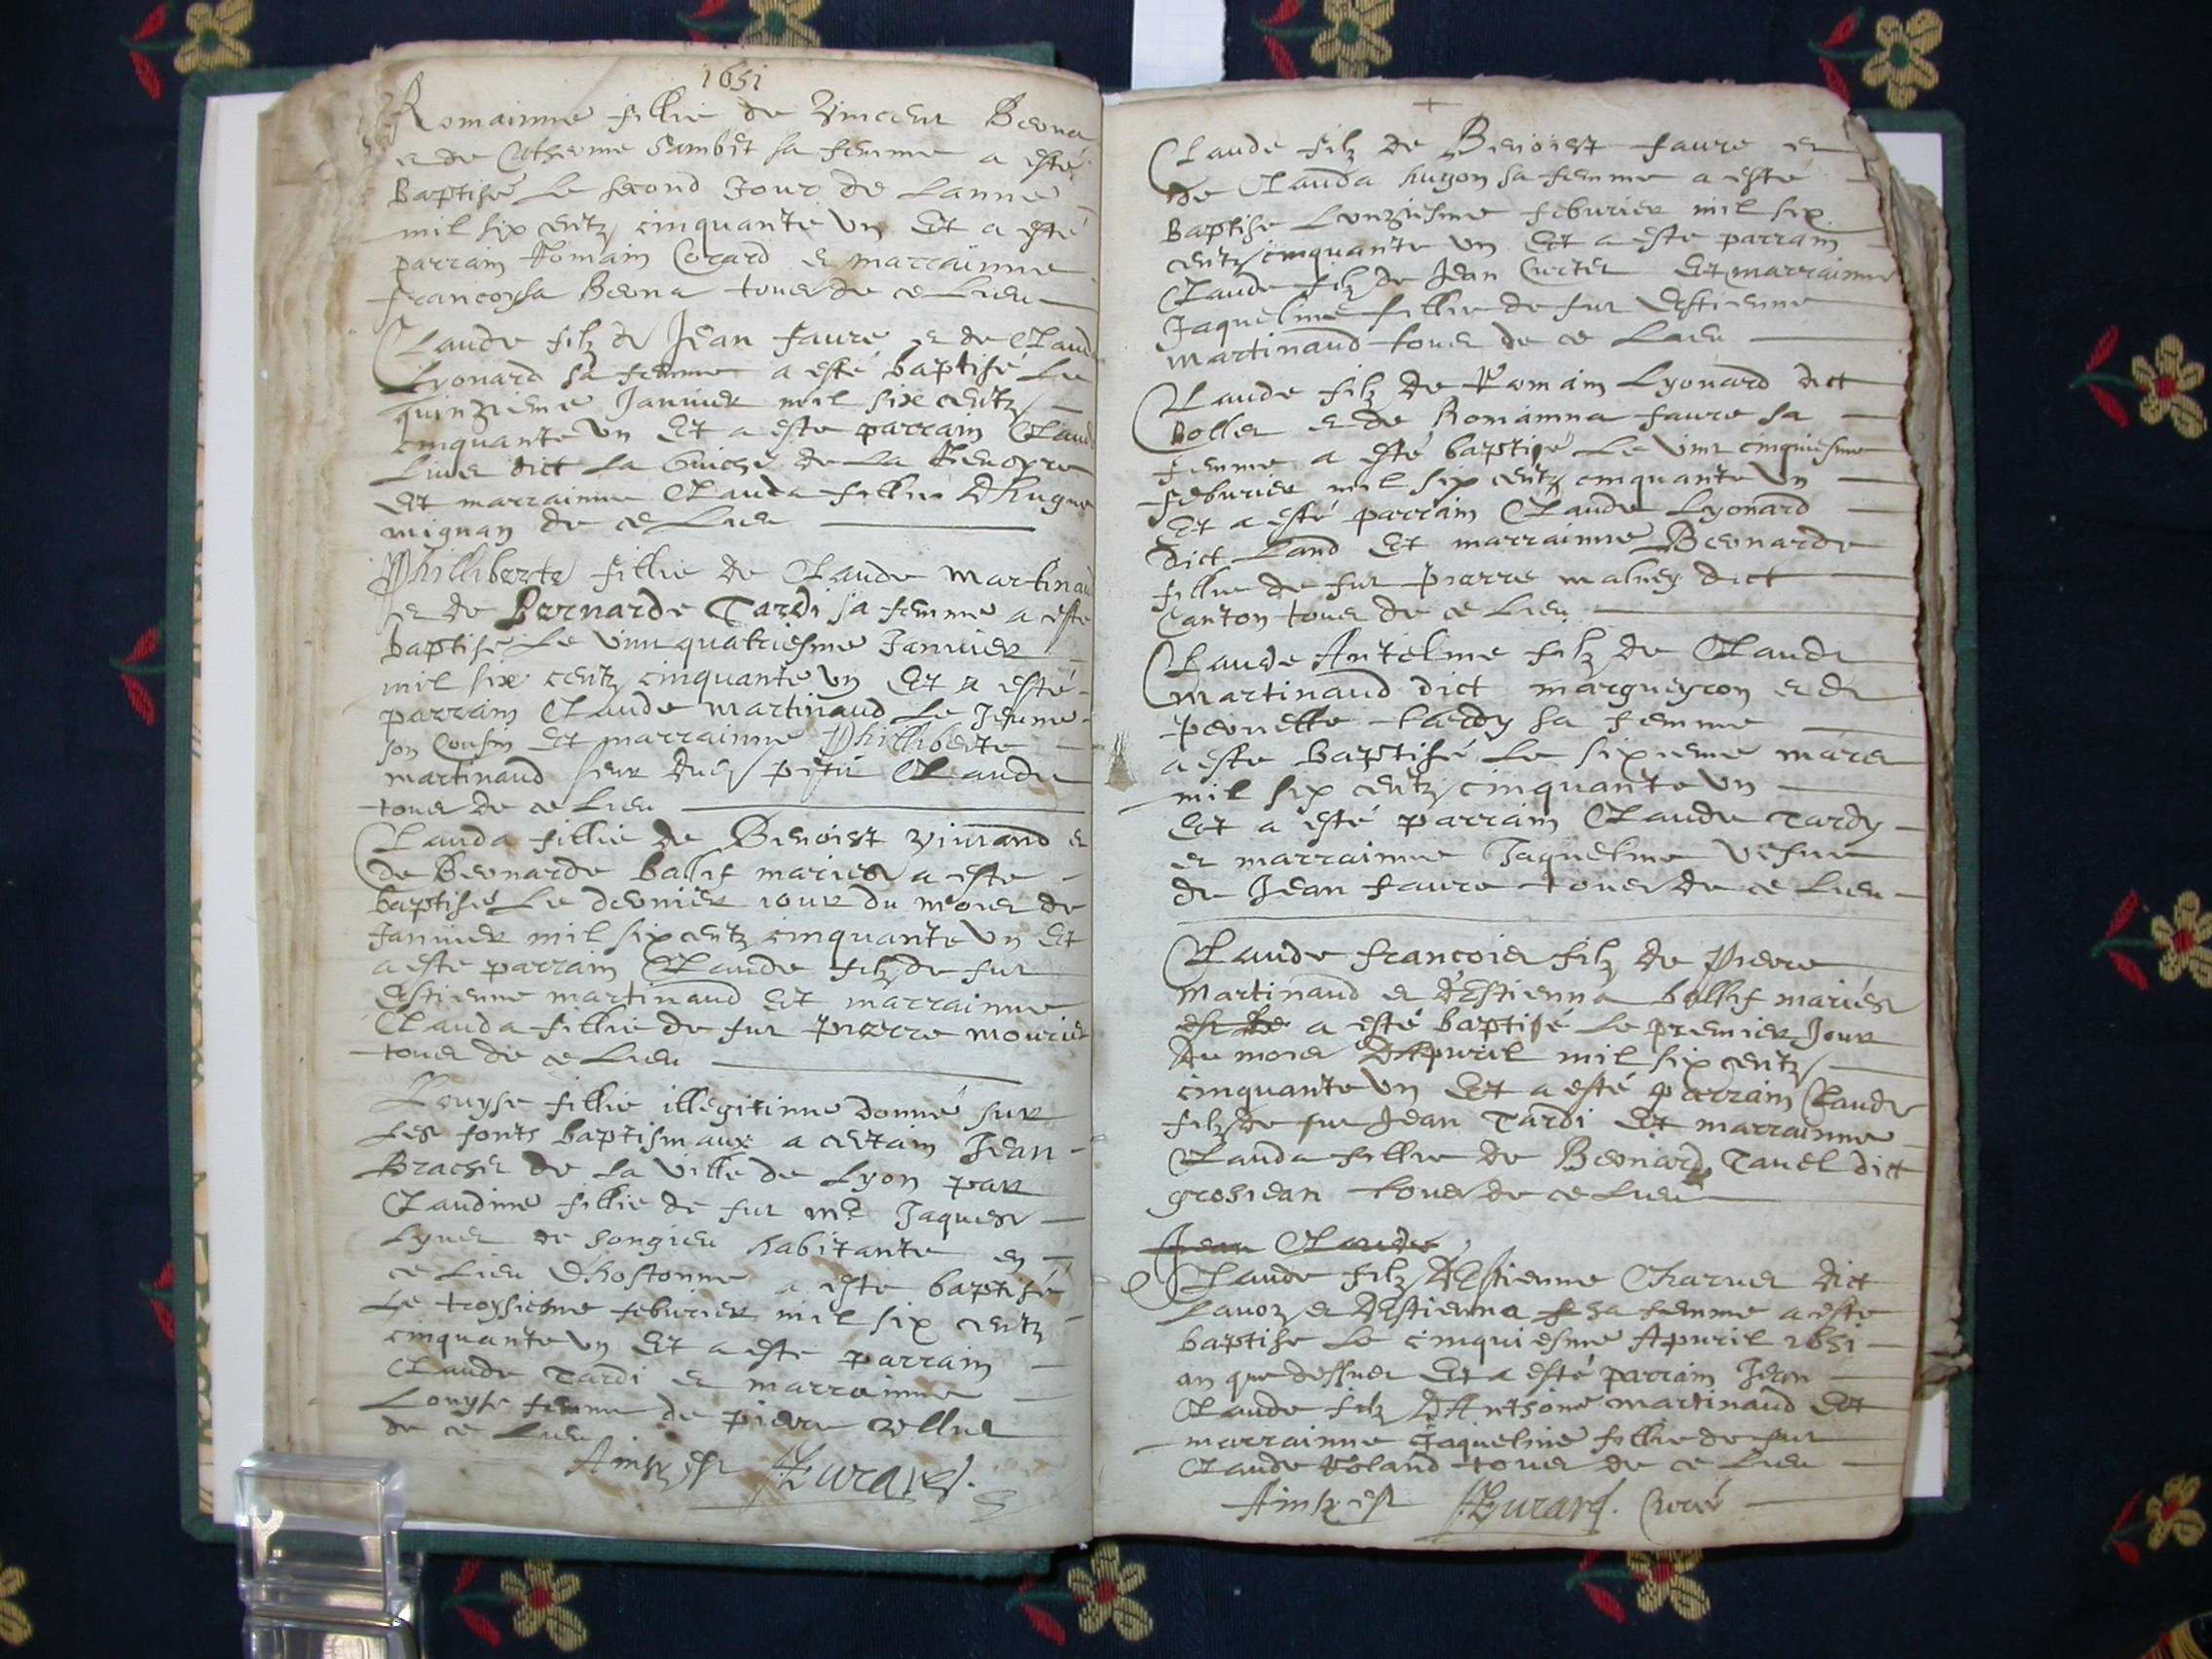 1651
Romainne fillie de Vincent Berna
et de Catherine sa femme a esté
Baptisé Le second Jour de Lanné
mil six centz cinquante un Et a esté
parrain Romain Corard et marrainne
francoysa Berna tous de ce Lieu
Claude filz de Jean faure et de Clauda
Lyonard sa femme a esté baptisé Le
quinzieme Januier mil six centz
cinquante un Et a este parrain Claude
dict la de La
Et marrainne Clauda fillie d'hugue
mignan de ce Lieu
Philliberte fillie de Claude martinaud
et de Bernarde Tardi sa femme a este
baptisé Le vint quatriesme Januier
mil six centz cinquante un Et a esté
parrain Claude martinaud Le Jeune
son Cousin Et marrainne Philliberte
martinaud seur Claude
tous de ce Lieu
Clauda fillie de Benoist viurand et
de Bernarde ballif mariés a este
baptisé Le dernier iour du mois de
Januier mil six centz cinquante un Et
a este parrain Claude filz de fut
Estienne martinaud Et marrainne
Clauda fillie de fut pierre mourier
tous de ce Lieu
Louyse fillie illegitime donné sur
Les fonts baptismaux a certain Jean
Brachet de la ville de Lyon par
Claudine fillie de fut me Jaques
Lyuet de songieu habitante en
ce Lieu d'hostonne a este baptisé
Le troysiesme feburier mil six centz
cinquante un Et a este parrain
Claude Tardi et marrainne
Louyse femme de pierre
de ce Lieu
Ainsy est
Claude filz de Benoist faure et
de Clauda hugon sa femme a esté
Baptise Lonziesme feburier mil six
centz cinquante un Et a este parrain
Claude filz de Jean Curtet Et marrainne
Jaqueline fillie de fut Estienne
martinaud tous de ce Lieu
Claude filz de Romain Lyonard dict
bollet et de Romainna faure sa
femme a esté baptisé Le vint cinquiesme
feburier mil six centz cinquante un
Et a esté parrain Claude Lyonard
dict Land Et marrainne Bernarde
fillie de fut pierre dict
Canton tous de ce Lieu
Claude Antelme filz de Claude
martinaud dict margueyron et de
pernette tardy sa femme
a este baptisé Le sixieme mars
mil six centz cinquante un
Et a esté parrain Claude Tardy
et marrainne Jaqueline vefue
de Jean faure tous de ce Lieu
Claude francois filz de Pierre
martinaud et d'Estienna ballif mariés
a esté baptisé Le premier Jour
du mois d'Apuril mil six centz
cinquante un Et a esté parrain Claude
filz de fut Jean Tardi Et marrainne
Clauda fillie de Bernard Tauel dict
grosjean tous de ce Lieu
Jean Claude
Claude filz d'Estienne Charuet dict
Lauoz et d'Estienna sa femme a este
baptise Le cinquiesme Apuril 1651
an que dessus Et a esté parrain Jean
Claude filz d'Anthoine martinaud Et
marrainne Jaqueline fillie de fut
Claude Roland tous de ce Lieu
Ainsy est Curé